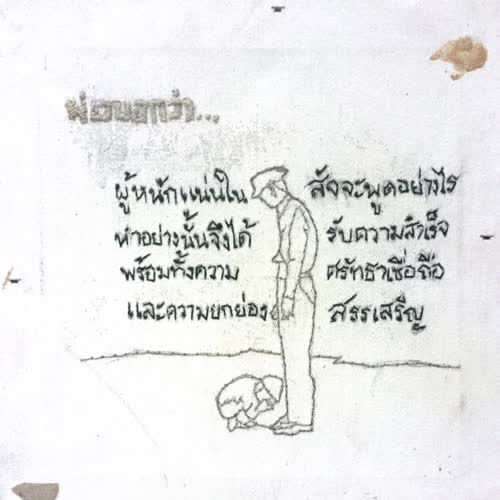 พ่อบอกว่า...
ผู้หนักแน่นใน สัจจะพูดอย่างไร
ทำอย่างนั้นจึงได้ รับความสำเร็จ
พร้อมทั้งความ ศรัทธาเชื่อถือ
และความยกย่อง สรรเสริญ